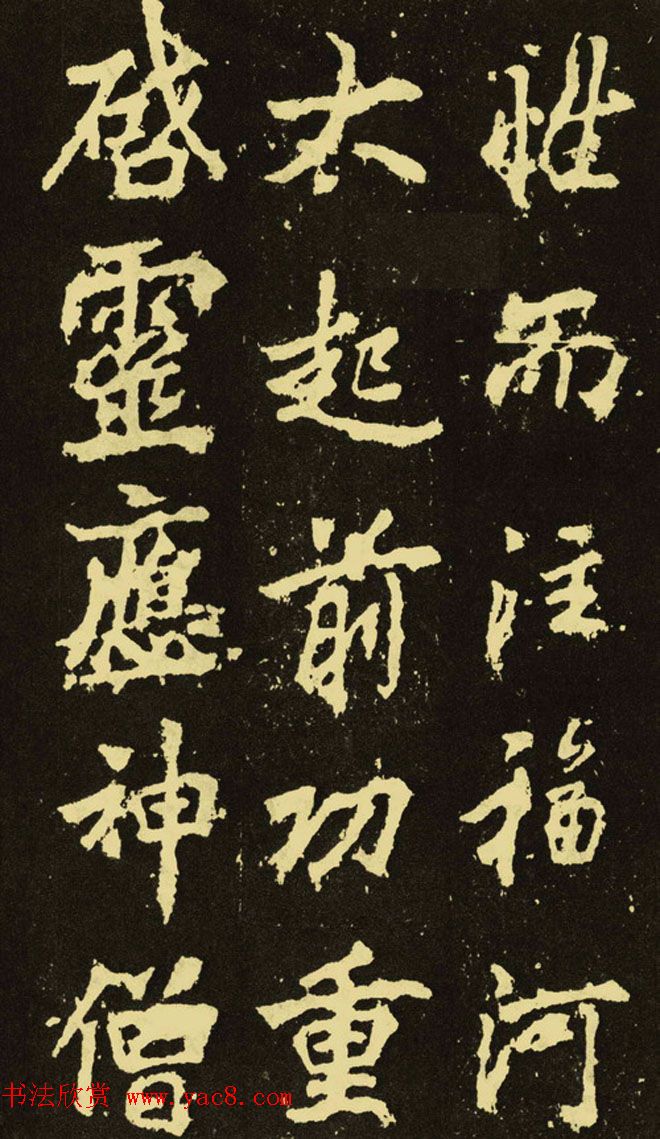 而注福河
太起前功重
啓靈應神僧
书法欣赏 www.yac8.com